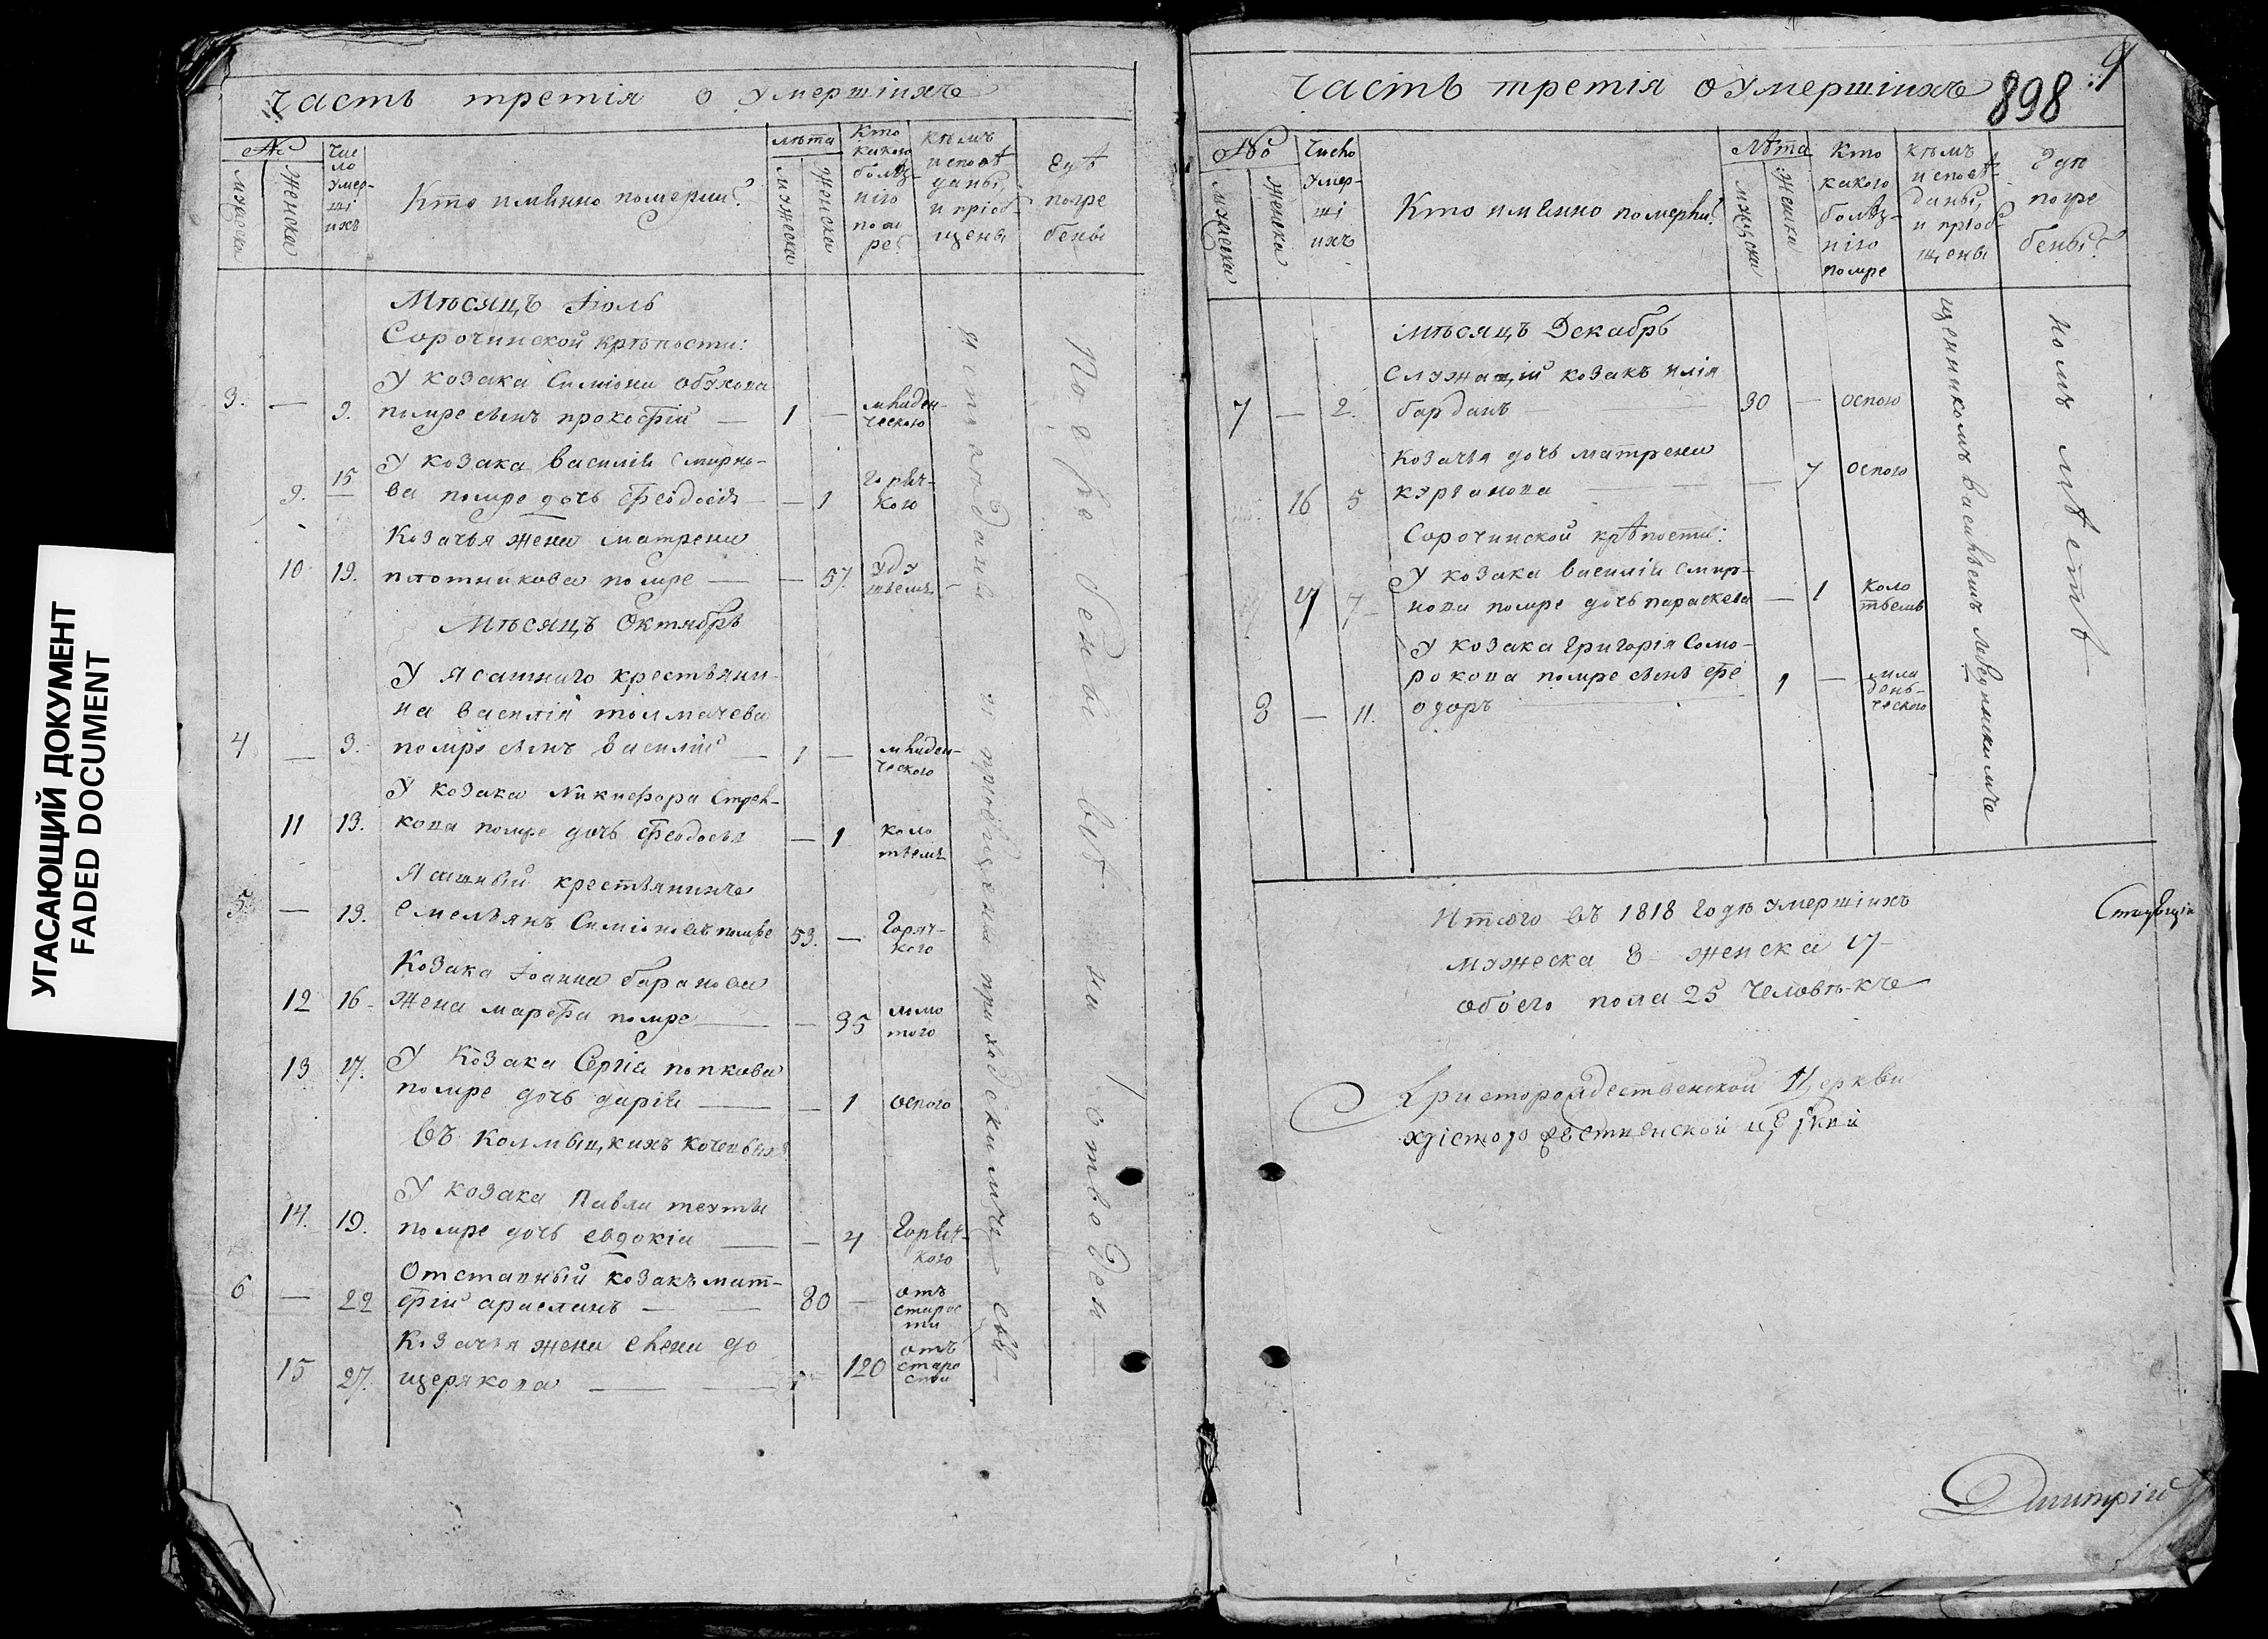 УГАСАЮЩИЙ ДОКУМЕНТ
FADED DOCUMENT
Часть третія о умершіихъ
№
мужеска
женска
Чис
ло
умер-
ші
ихъ
Кто имянно померли?
лѣта
мужеска
женска
Кто
какою
болѣз-
нію
пом
ре?
кѣмъ
исповѣ
даны,
и пріоб-
щены
гдѣ
погре
бены
Мѣсяцъ Іюль
Сорочинской крѣпости:
У козака Симіона обухова
3. — 9. помре сынъ прокофій — 1 — младен-
ческою
У козака василія Смирно-
9. 15 ва помре дочь феодосія — — 1 горяч-
кою
Козачья жена матрена
10 19. плотникова помре — — 57. уду
шьемъ
Мѣсяцъ Октябрь
У ясашнаго крестьяни-
на василія толмачева
4 — 3. помре сынъ василій — 1 — младен-
ческою
У козака Никифора Стрел-
11 13. кова помре дочь феодосья — 1 коло
тьемъ
Ясашный крестьянинъ
5. — 13. емельянъ Симіоновъ помре 53. — Горяч-
кою
Козака Іоанна баранова
12 16- жена марфа помре — — 35 ломо
тою
13 17. У Козака Сергіа попкова
помре дочь дарія — — 1 оспою
Въ Колмыцкихъ кочевьяхъ
У козака Павла
14. 19. помре дочь евдокіа — — 4 Горяч-
кою
Отставный козакъ мат-
6 — 22 фій арасланъ — — 80 — отъ
старос
ти
Козачья жена елена
15 27. щерякова — — 120 отъ
старо
сти
исповѣданы и пріобщены приходскимъ свя-
Погребены въ на отведен-
Часть третія о умершіихъ
898
9
№
мужеска
женска
Число
умер-
ші
ихъ
Кто имянно померли?
Лѣта
мужеска
женска
Кто
какою
болѣз-
нію
помре
кѣмъ
исповѣ-
даны,
и пріоб-
щены
Гдѣ
погре
бены?
мѣсяцъ Декабрь
Служащій козакъ илія
7 — 2. барданъ — 30 — оспою
Козачья дочь матрена
16 5 курганова — — — 7 оспою
Сорочинской крѣпости:
У козака василія смир-
17 7- нова помре дочь параскева — 1 коло
тьемъ
У козака Григорія Сомо-
рокова помре сынъ фе
8 — 11. одоръ — 1 — мла
день-
ческою
щенникомъ василіемъ Лебединскимъ
номъ мѣстѣ
Итого въ 1818 годѣ умершіихъ
мужеска 8- женска 17-
обоего пола 25 человѣкъ
Христорождественской Церкви
Димитрій